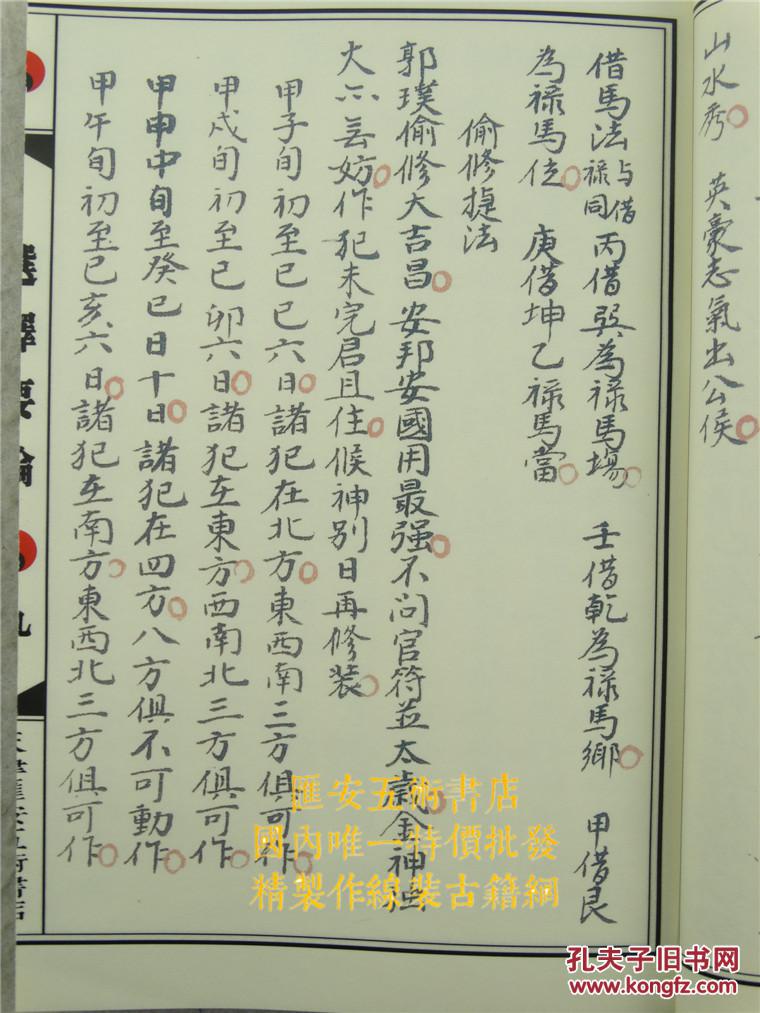 山水秀　英豪志氣出公侯
借馬法與借祿同　丙借巽為祿馬場　壬借乾為祿馬鄉　甲借艮
為祿馬位　庚借坤乙祿馬當
偷修捷法
郭璞偷修大吉昌　安邦安國用最强　不问官符並太歲　金神
火不云妨　作犯未完君且住　候神別日再修装
甲子旬初至己巳六日　諸犯在北方　東西南三方俱可作
甲戍旬初至己卯六日　諸犯在東方　西南北三方俱可作
甲申中旬至癸巳日十日　諸犯在四方　八方俱不可動作
甲午旬初至己亥六日　諸犯在南方　東西北三方俱可作
選擇要論
九
匯安五術書店
國內唯一特價批發
精製作線裝古籍網
孔夫子旧书网
www.kongfz.com